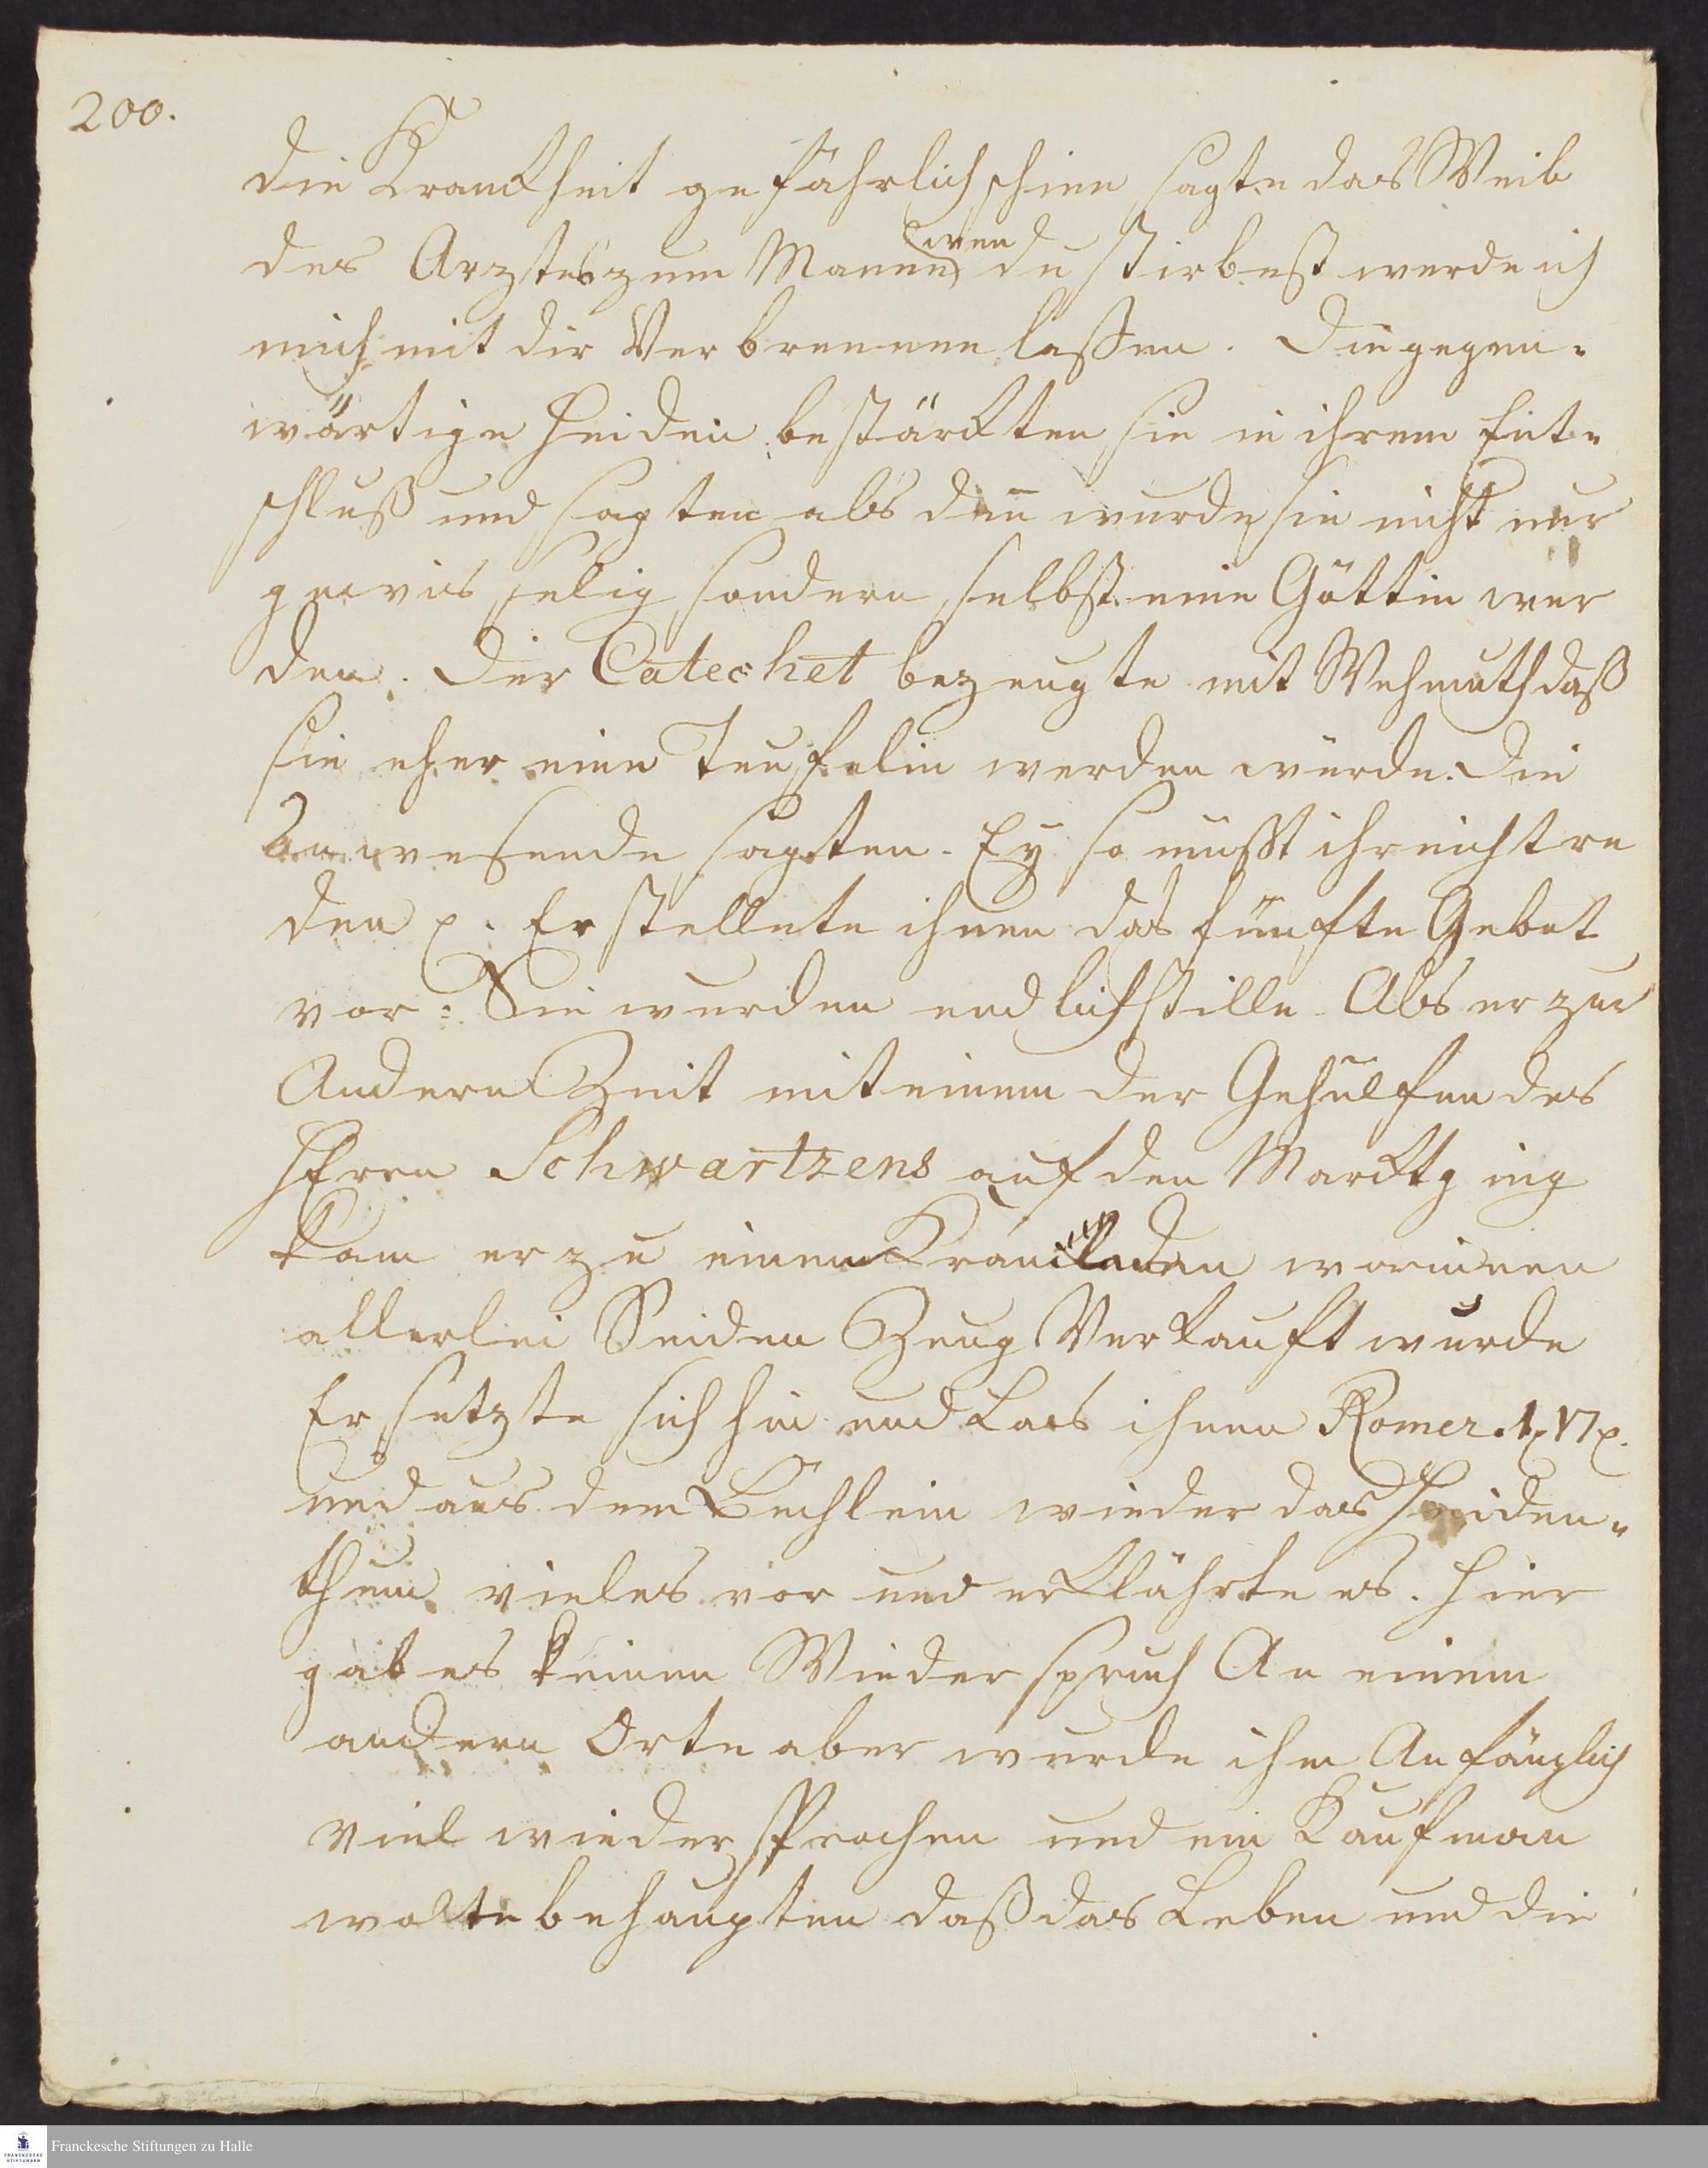 200.
die Kranckheit gefährlich schien sagte das Weib
des Arztes zum Manne wen du stirbest werde ich
mich mit dir Verbrennen lassen. Die gegen-
wärtige Heiden bestärckten sie in ihrem Ent-
schluß und sagten als den̅ wurde sie nicht nur
gewis selig sondern selbst eine Göttin wer
den. Der Catechet bezeugte mit Wehmuth daß
sie eher eine Teufelin werden würde. Die
Anwesende sagten. Ey so müsst ihr nicht re
den p. Er stellete ihnen das fünfte Gebot
vor: Sie wurden endlich stille. Als er zur
Andern Zeit mit einem der Gehülfen des
Herrn Schwartzens auf den Marckt ging
kam er zu einem laden worinnen
allerlei Seiden Zeug Verkauft wurde
Er setzte sich hin und Las ihnen Romer. 1
und aus dem Büchlein wieder das Heiden-
thum vieles vor und erklährte es. Hier
gab es keinen Wiederspruch An einem
andern Orte aber wurde ihm Anfänglich
viel wiedersprochen und ein Kaufman
wolte behaupten daß das Leben und die
Franckesche Stiftungen zu Halle
FRANCKESCHE
STIFTUNGEN